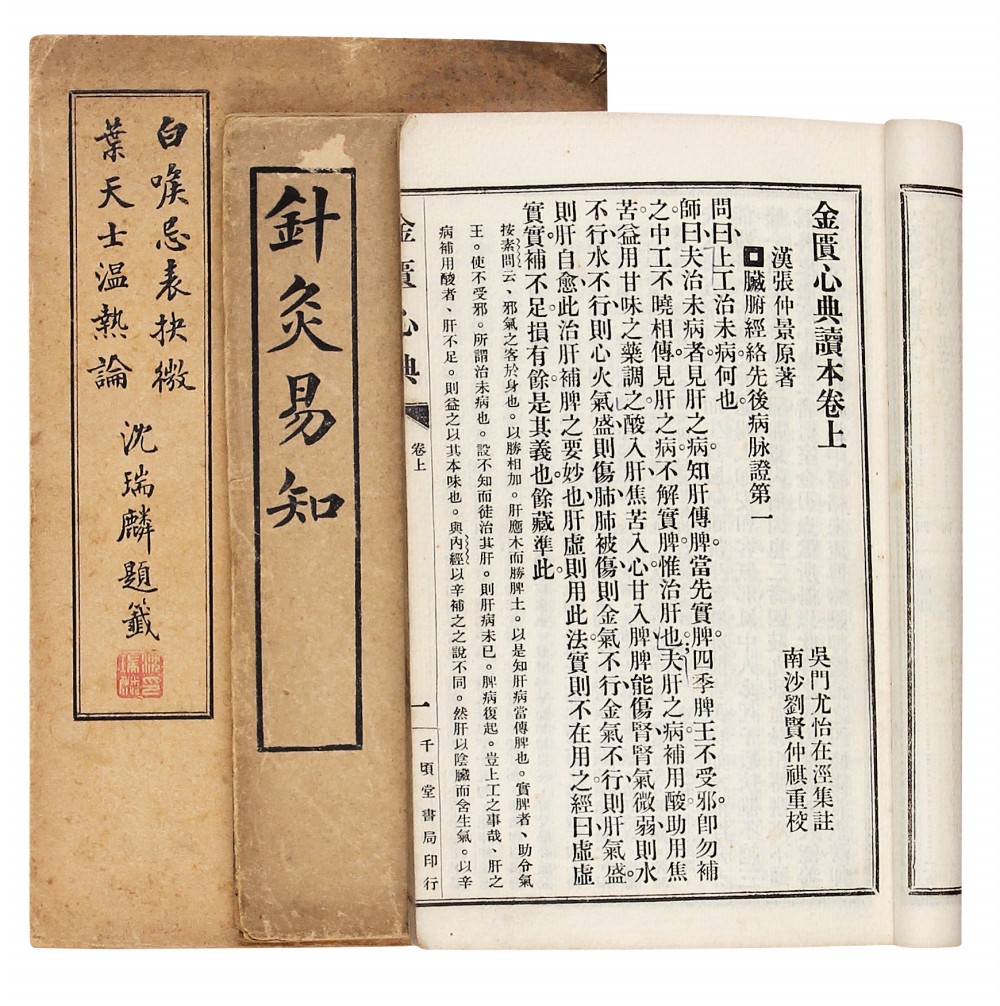 白喉忌表抉微
葉天士温熱論
沈瑞麟題籤
針灸易知
金匱心典讀本卷上
漢張仲景原著
吳門尤怡在涇集註
南沙劉賢仲祺重校
臟腑經絡先後病脉證第一
問曰上工治未病何也
師曰夫治未病者見肝之病知肝傳脾當先實脾四季脾王不受邪卽勿補
之中工不曉相傳見肝之病不解實脾惟治肝也夫肝之病補用酸助用焦
苦益用甘味之藥調之酸入肝焦苦入心甘入脾脾能傷腎腎氣微弱則水
不行水不行則心火氣盛則傷肺肺被傷則金氣不行金氣不行則肝氣盛
則肝自愈此治肝補脾之要妙也肝虛則用此法實則不在用之經曰虛虛
實實補不足損有餘是其義也餘藏準此
按素問云、邪氣之客於身也。以勝相加。肝應木而勝脾土。以是知肝病當傳脾也。實脾者、助令氣
王。使不受邪。所謂治未病也。設不知而徒治其肝。則肝病未已。脾病復起。豈上工之事哉、肝之
病補用酸者、肝不足。則益之以其本味也。與內經以辛補之之說不同。然肝以陰臟而舍生氣。以辛
金匱心典
卷上
一
千頃堂書局印行